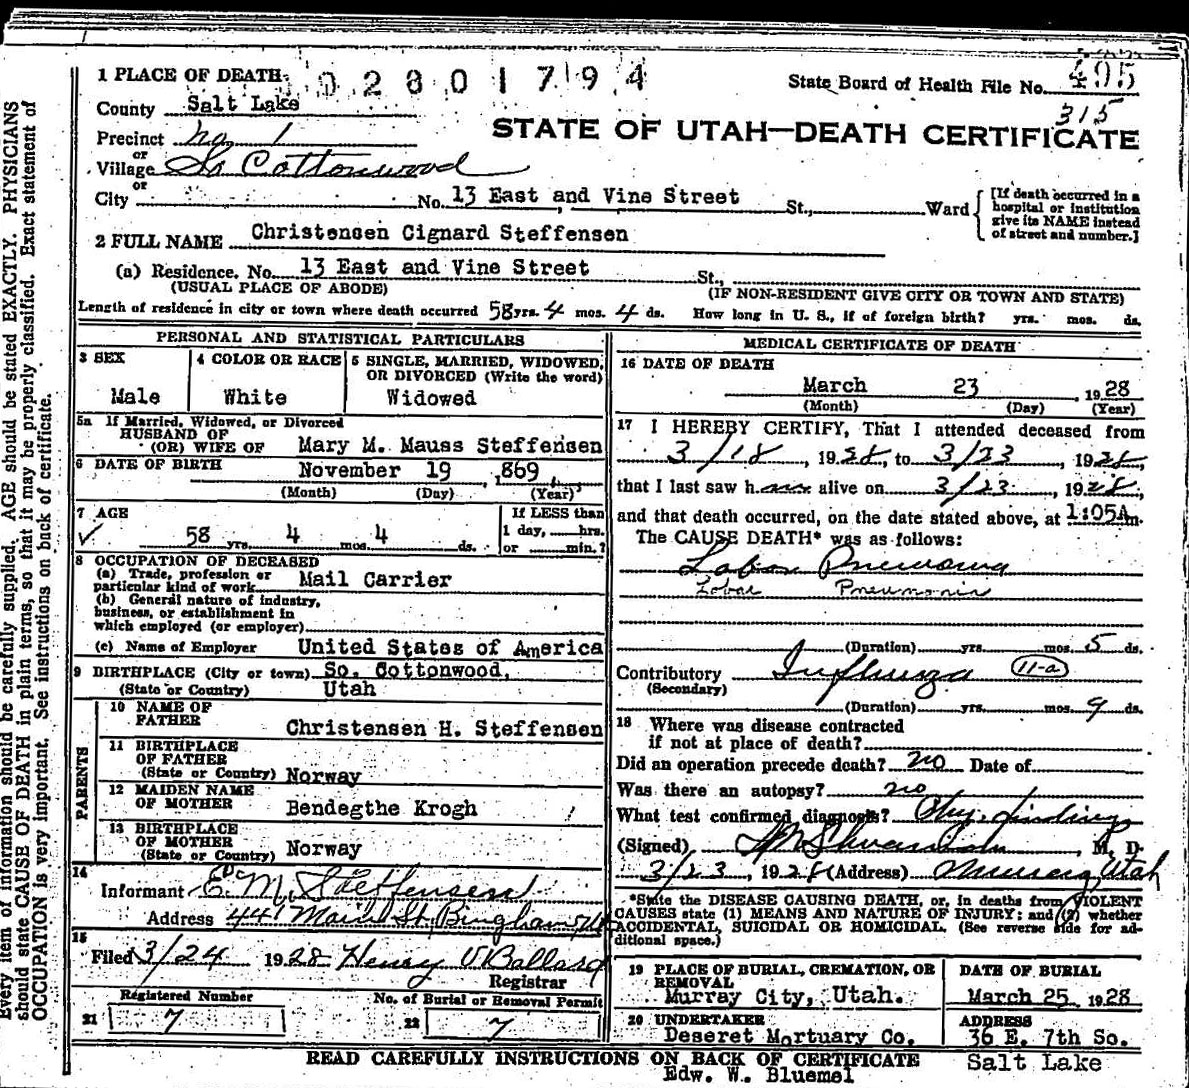 1 PLACE OF DEATH 0 2 8 0 1 7 9 4 State Board of Health File No. 495
County Salt Lake 315
STATE OF UTAH—DEATH CERTIFICATE
Precinct no. 1
or
Village So Cottonwood
or
City No. 13 East and Vine Street St., Ward
[If death occurred in a
hospital or institution
give its NAME instead
of street and number.]
2 FULL NAME Christensen Cignard Steffensen
(a) Residence. No. 13 East and Vine Street St.,
(USUAL PLACE OF ABODE) (IF NON-RESIDENT GIVE CITY OR TOWN AND STATE)
Length of residence in city or town where death occurred 58 yrs. 4 mos. 4 ds. How long in U. S., if of foreign birth? yrs. mos. ds.
PERSONAL AND STATISTICAL PARTICULARS
3 SEX 4 COLOR OR RACE 5 SINGLE, MARRIED, WIDOWED,
OR DIVORCED (Write the word)
Male White Widowed
5a If Married, Widowed, or Divorced
HUSBAND OF
(OR) WIFE OF Mary M. Mauss Steffensen
6 DATE OF BIRTH November 19 , 1869
(Month) (Day) (Year)
7 AGE If LESS than
58 yrs. 4 mos. 4 ds. 1 day, hrs.
or min.?
8 OCCUPATION OF DECEASED
(a) Trade, profession or
particular kind of work Mail Carrier
(b) General nature of industry,
business, or establishment in
which employed (or employer)
(c) Name of Employer United States of America
9 BIRTHPLACE (City or town) So. Cottonwood,
(State or Country) Utah
PARENTS
10 NAME OF
FATHER Christensen H. Steffensen
11 BIRTHPLACE
OF FATHER
(State or Country) Norway
12 MAIDEN NAME
OF MOTHER Bendegthe Krogh
13 BIRTHPLACE
OF MOTHER
(State or Country) Norway
14
Informant E. M. Steffensen
Address 441 Main St. Bingham, Ut
15
Filed 3/24 1928 Henry V Ballard
Registrar
Registered Number No. of Burial or Removal Permit
21 7 22 7
MEDICAL CERTIFICATE OF DEATH
16 DATE OF DEATH
March 23 , 1928
(Month) (Day) (Year)
17 I HEREBY CERTIFY, That I attended deceased from
3/18 , 1928, to 3/23 , 1928,
that I last saw h alive on 3/23 , 1928,
and that death occurred, on the date stated above, at 1:05A m.
The CAUSE DEATH* was as follows:
Lobar Pneumonia
Lobar Pneumonia
(Duration) yrs. mos. 5 ds.
Contributory Influenza 11-a
(Secondary)
(Duration) yrs. mos. 9 ds.
18 Where was disease contracted
if not at place of death?
Did an operation precede death? no Date of
Was there an autopsy? no
What test confirmed diagnosis? Phy. findings
(Signed) , M. D.
3/23 , 1928 (Address) Murray, Utah
*State the DISEASE CAUSING DEATH, or, in deaths from VIOLENT
CAUSES state (1) MEANS AND NATURE OF INJURY; and (2) whether
ACCIDENTAL, SUICIDAL OR HOMICIDAL. (See reverse side for ad-
ditional space.)
19 PLACE OF BURIAL, CREMATION, OR
REMOVAL
Murray City, Utah.
DATE OF BURIAL
March 25 1928
20 UNDERTAKER
Deseret Mortuary Co.
ADDRESS
36 E. 7th So.
READ CAREFULLY INSTRUCTIONS ON BACK OF CERTIFICATE Salt Lake
Edw. W. Bluemel
Every item of information should be carefully supplied. AGE should be stated EXACTLY. PHYSICIANS
should state CAUSE OF DEATH in plain terms, so that it may be properly classified. Exact statement of
OCCUPATION is very important. See instructions on back of certificate.